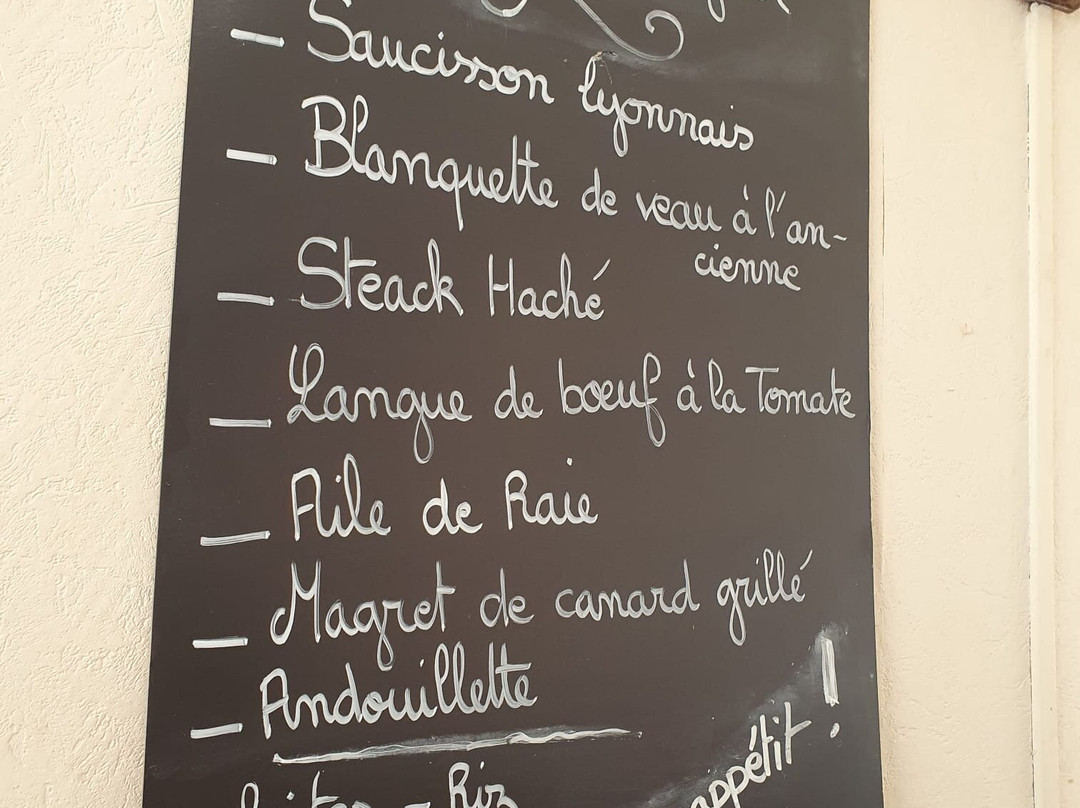 – Saucisson lyonnais
– Blanquette de veau à l'an-
cienne
– Steack Haché
– Langue de bœuf à la Tomate
– Aile de Raie
– Magret de canard grillé
– Andouillette
– Riz
appétit !